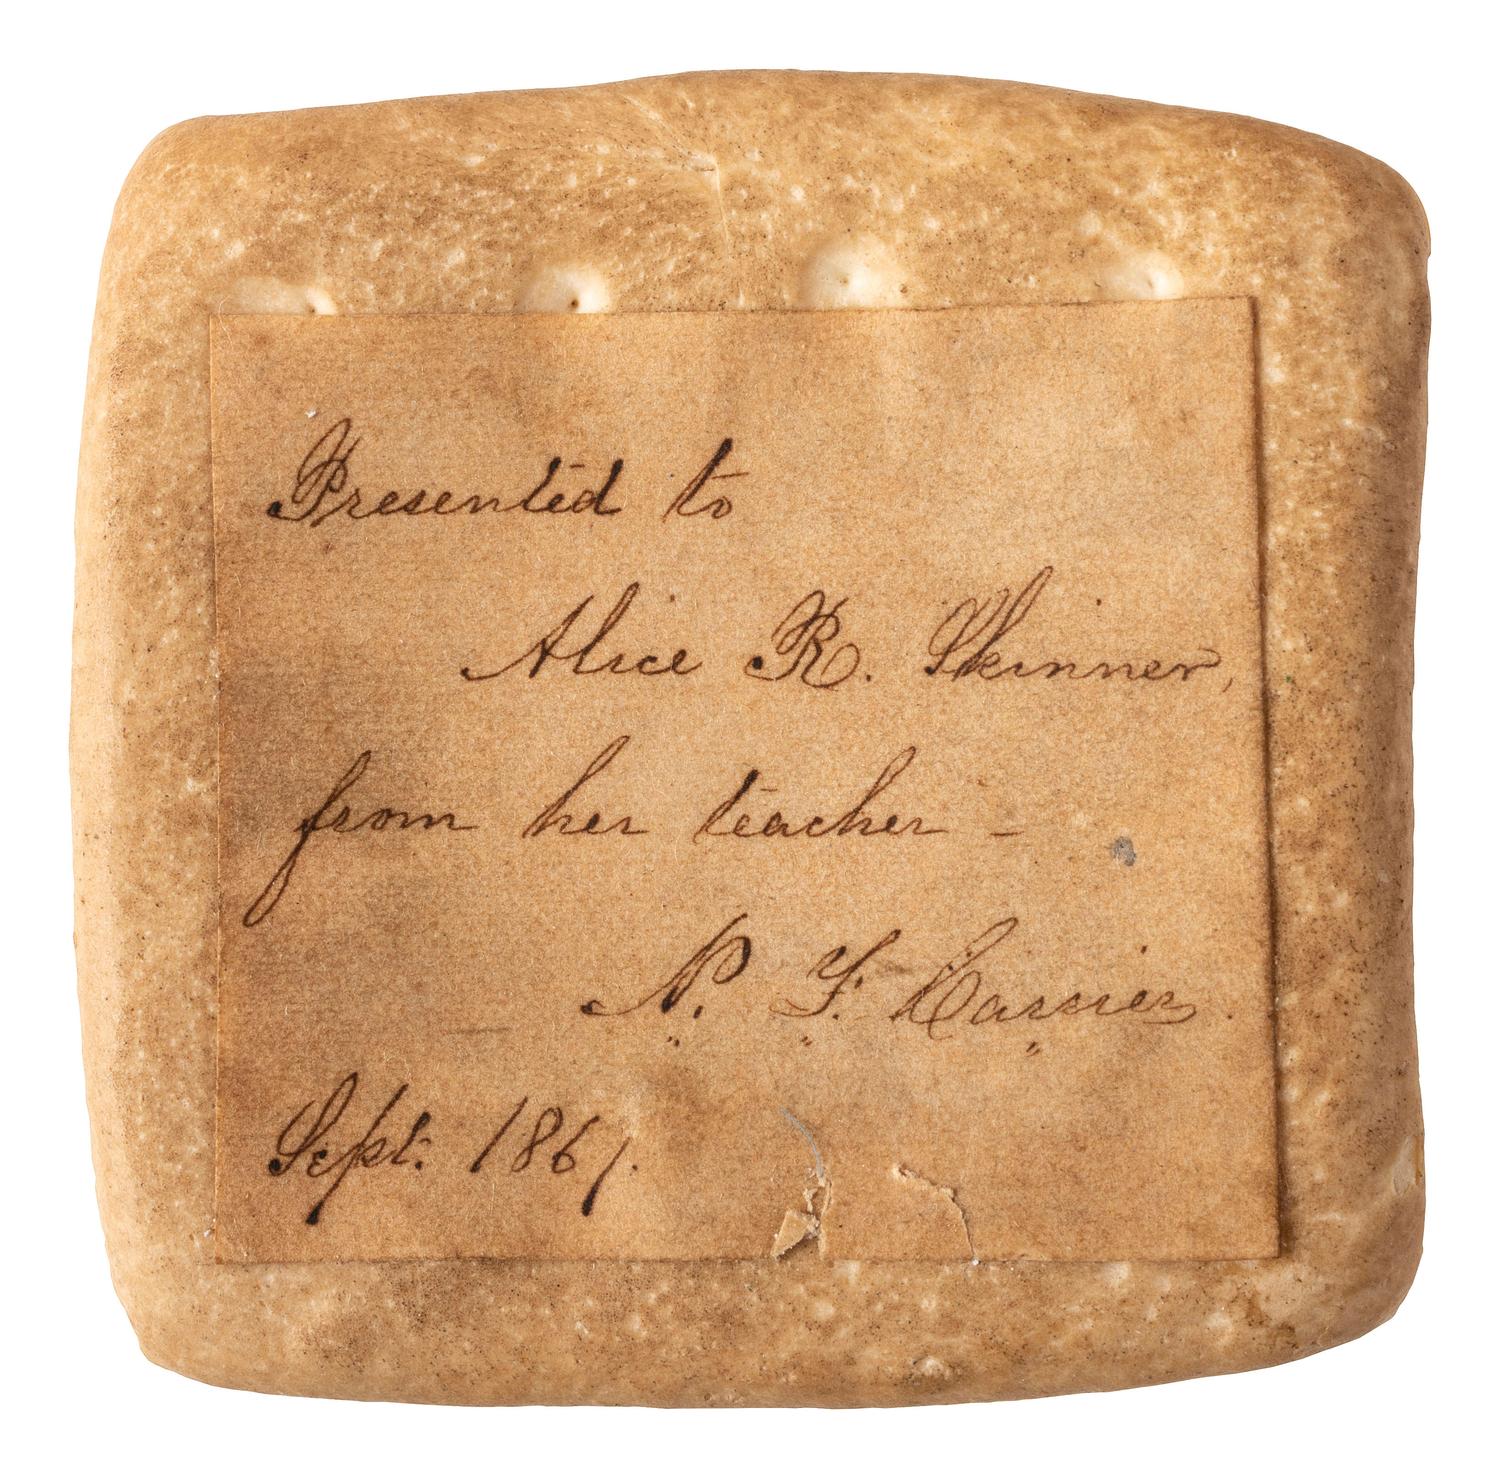 Presented to
Alice R. Skinner,
from her teacher -
N. F. Carrier.
Sept. 1861.